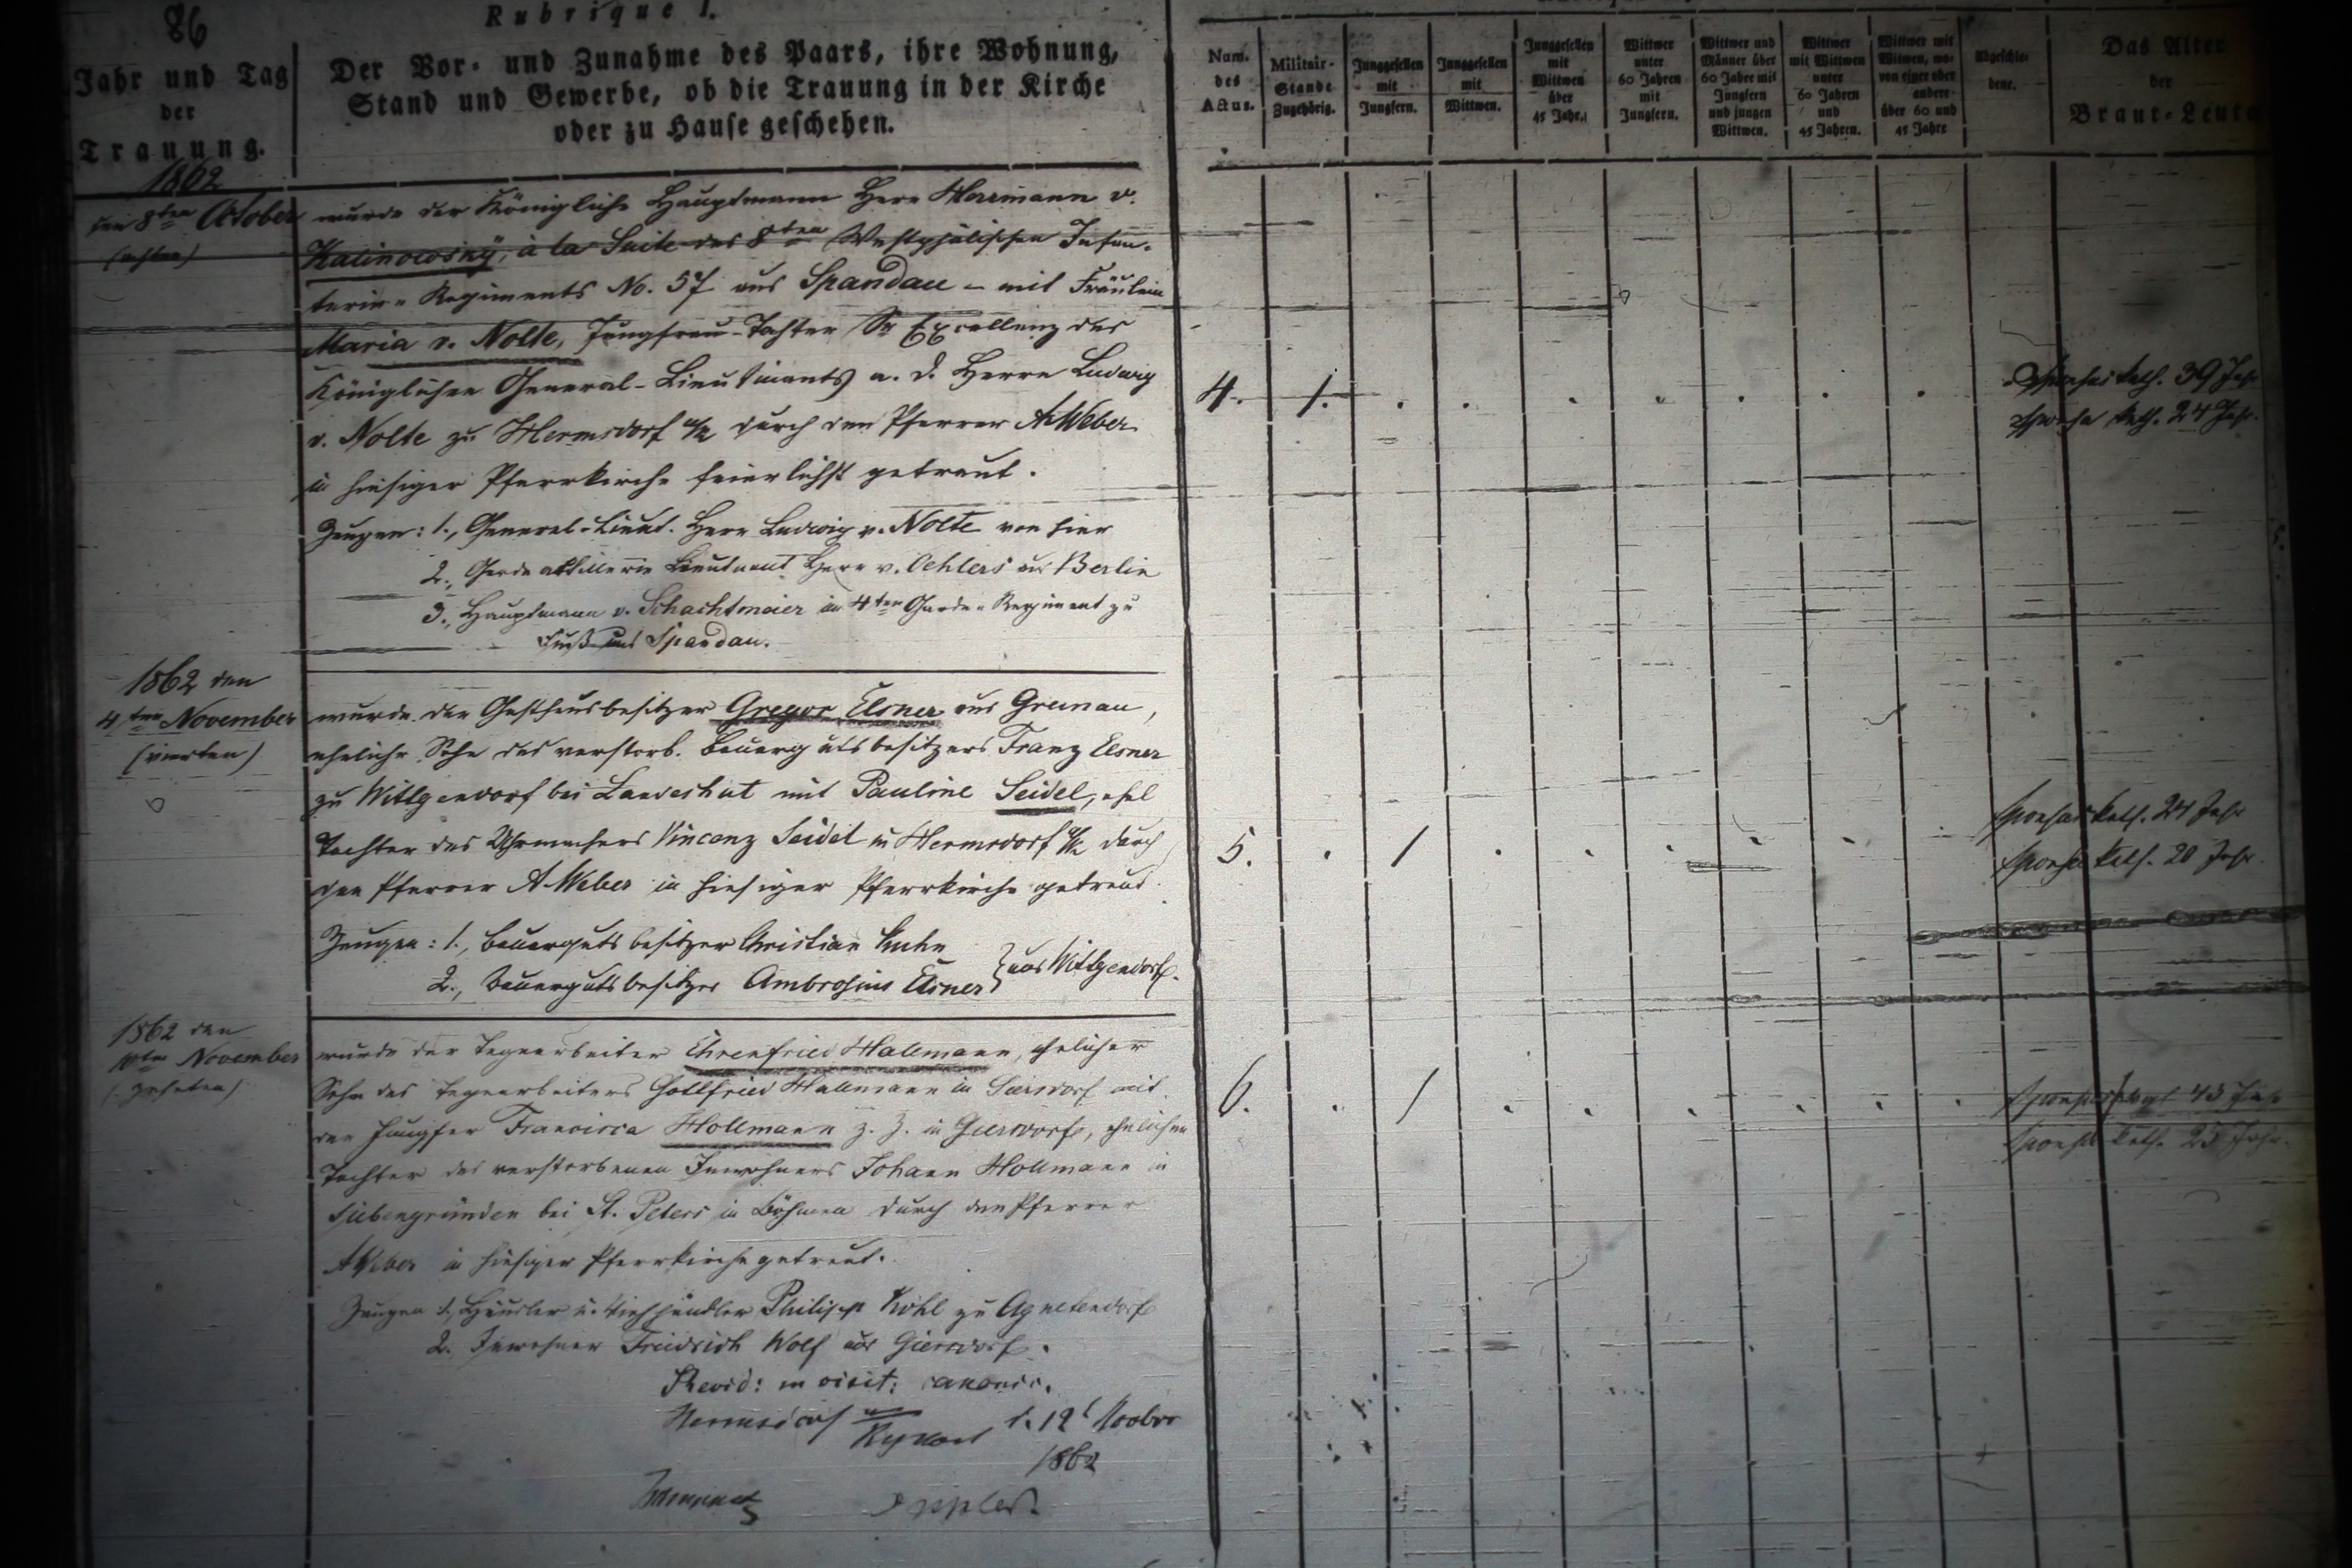 86
Rubrique I.
Jahr und Tag
der
Trauung.
Der Vor- und Zunahme des Paars, ihre Wohnung,
Stand und Gewerbe, ob die Trauung in der Kirche
oder zu Hause geschehen.
Num.
des
Actus.
Militair-
Stande
Zugehörig.
Junggesellen
mit
Jungfern.
Junggesellen
mit
Wittwen.
Junggesellen
mit
Wittwen
über
45 Jahr.
Wittwer
unter
60 Jahren
mit
Jungfern.
Wittwer und
Männer über
60 Jahre mit
Jungfern
und jungen
Wittwen.
Wittwer
mit Wittwen
unter
60 Jahren
und
45 Jahren.
Wittwer mit
Witwen, wo-
von einer oder
andere
über 60 und
45 Jahre
Abgeschie-
dene.
Das Alter
der
Braut-Leute
1862
den 8ten October
(achten)
wurde der Königliche Hauptmann Herr Herrmann v.
Kalinowsky, à la Suite des 8ten Westphälischen Infan-
terie-Regiments No. 57 aus Spandau - mit Fräulein
Maria v. Nolte, Jungfrau-Tochter Sr Excellenz des
Königlichen General-Lieutinants a. D. Herrn Ludwig
v. Nolte zu Hermsdorf u/K durch den Pfarrer A Weber
in hiesiger Pfarrkirche feierlichst getraut.
4. 1.
Sponsus kath. 39 Jahr
Sponsa kath. 24 Jahr.
Zeugen: 1., General-Lieut. Herr Ludwig v. Nolte von hier
2., Garde artillerie Lieutnant Herr v. Oehlers aus Berlin
3., Hauptmann v. Schachtmeier im 4ten Garde-Regiment zu
Fuß aus Spandau.
1862 den
4ten November
(vierten)
wurde der Gasthausbesitzer Gregor Elsner aus Grunau,
eheliche Sohn des verstorb. Bauergutsbesitzers Franz Elsner
zu Wittgendorf bei Landeshut mit Pauline Seidel, ehel
Tochter des Uhrmachers Vincenz Seidel in Hermsdorf u/K durch
den Pfarrer A Weber in hiesiger Pfarrkirche getraut.
5. 1
Sponsus kath. 24 Jahr
Sponsa kath. 20 Jahr.
Zeugen: 1., Bauergutsbesitzer Christian Kuhn
2., Bauergutsbesitzer Ambrosius Elsner } aus Wittgendorf.
1862 den
10ten November
(zehnten)
wurde der Tagearbeiter Ehrenfried Hallmann, ehelicher
Sohn des Tagearbeiters Gottfried Hallmann in mit
der Jungfer Francisca Hollmann z. Z. in Giersdorf, ehelichen
Tochter des verstorbenen Inwohners Johann Hollmann in
Siebengründen bei St. Peters in Böhmen durch den Pfarrer
A Weber in hiesiger Pfarrkirche getraut.
6. 1
Sponsus 43 Jahr
Sponsa kath. 23 Jahr.
Zeugen 1., Häusler u. Viehhändler Philipp Kohl zu Agnetendorf
2. Inwohner Friedrich Wolf aus Giersdorf.
Revid: in visit: canonic.
Hermsdorf u/Kynast d. 12t Novbr
1862